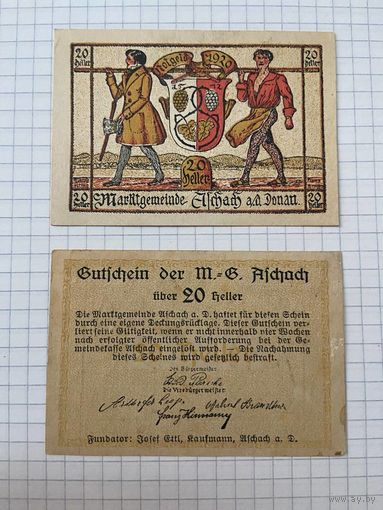 20 Heller
Notgeld 1920
20 Heller
15 12
20 Heller
20 Heller
20 Heller
Marktgemeinde Aschach a/d Donau.
Gutschein der M.=G. Aschach
über 20 Heller
Die Marktgemeinde Aschach a. D. haftet für diesen Schein
durch eine eigene Deckungsrücklage. Dieser Gutschein ver-
liert seine Giltigkeit, wenn er nicht innerhalb vier Wochen
nach erfolgter öffentlicher Aufforderung bei der Ge-
meindekasse Aschach eingelöst wird. — Die Nachahmung
dieses Scheines wird gesetzlich bestraft.
Der Bürgermeister
Die Vizebürgermeister
Fundator: Josef Ettl, Kaufmann, Aschach a. D.
www.ay.by